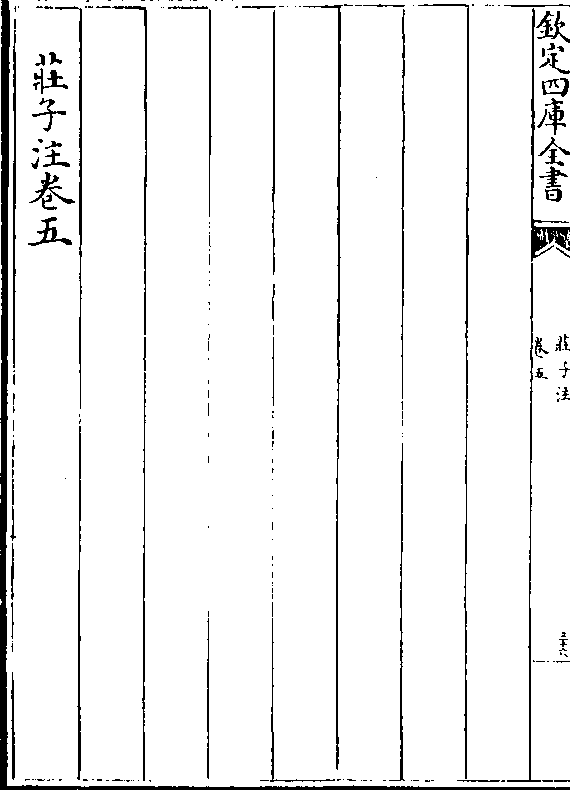 欽定四庫全書
莊子注
卷五
三十六
莊子注卷五